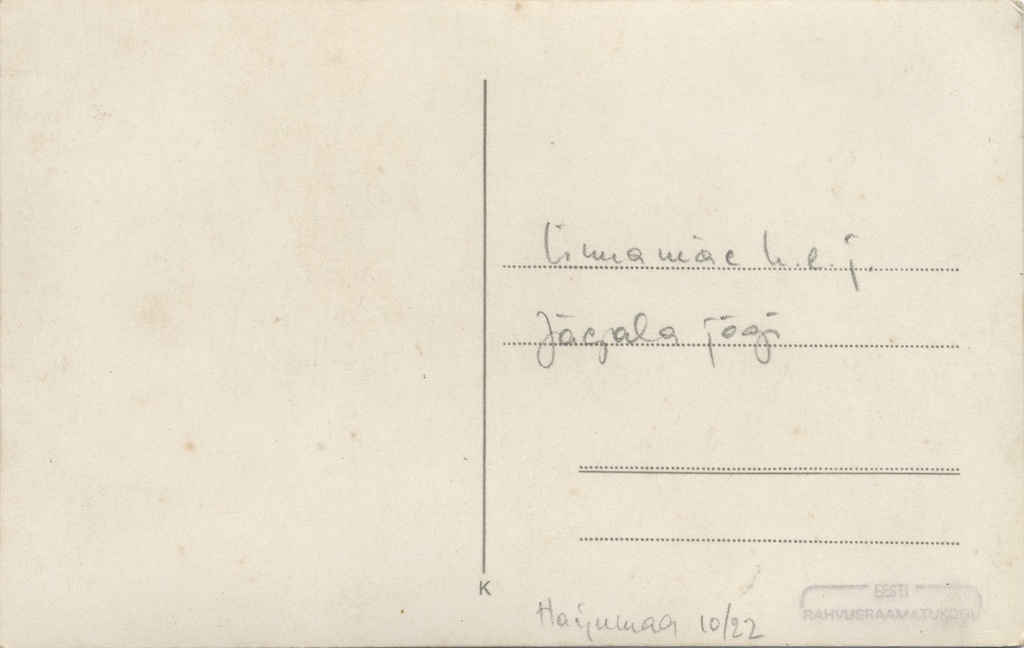 Linnamäe h.e.j.
Jägala jõgi
K
Harjumaa 10/22
EESTI
RAHVUSRAAMATUKOGU